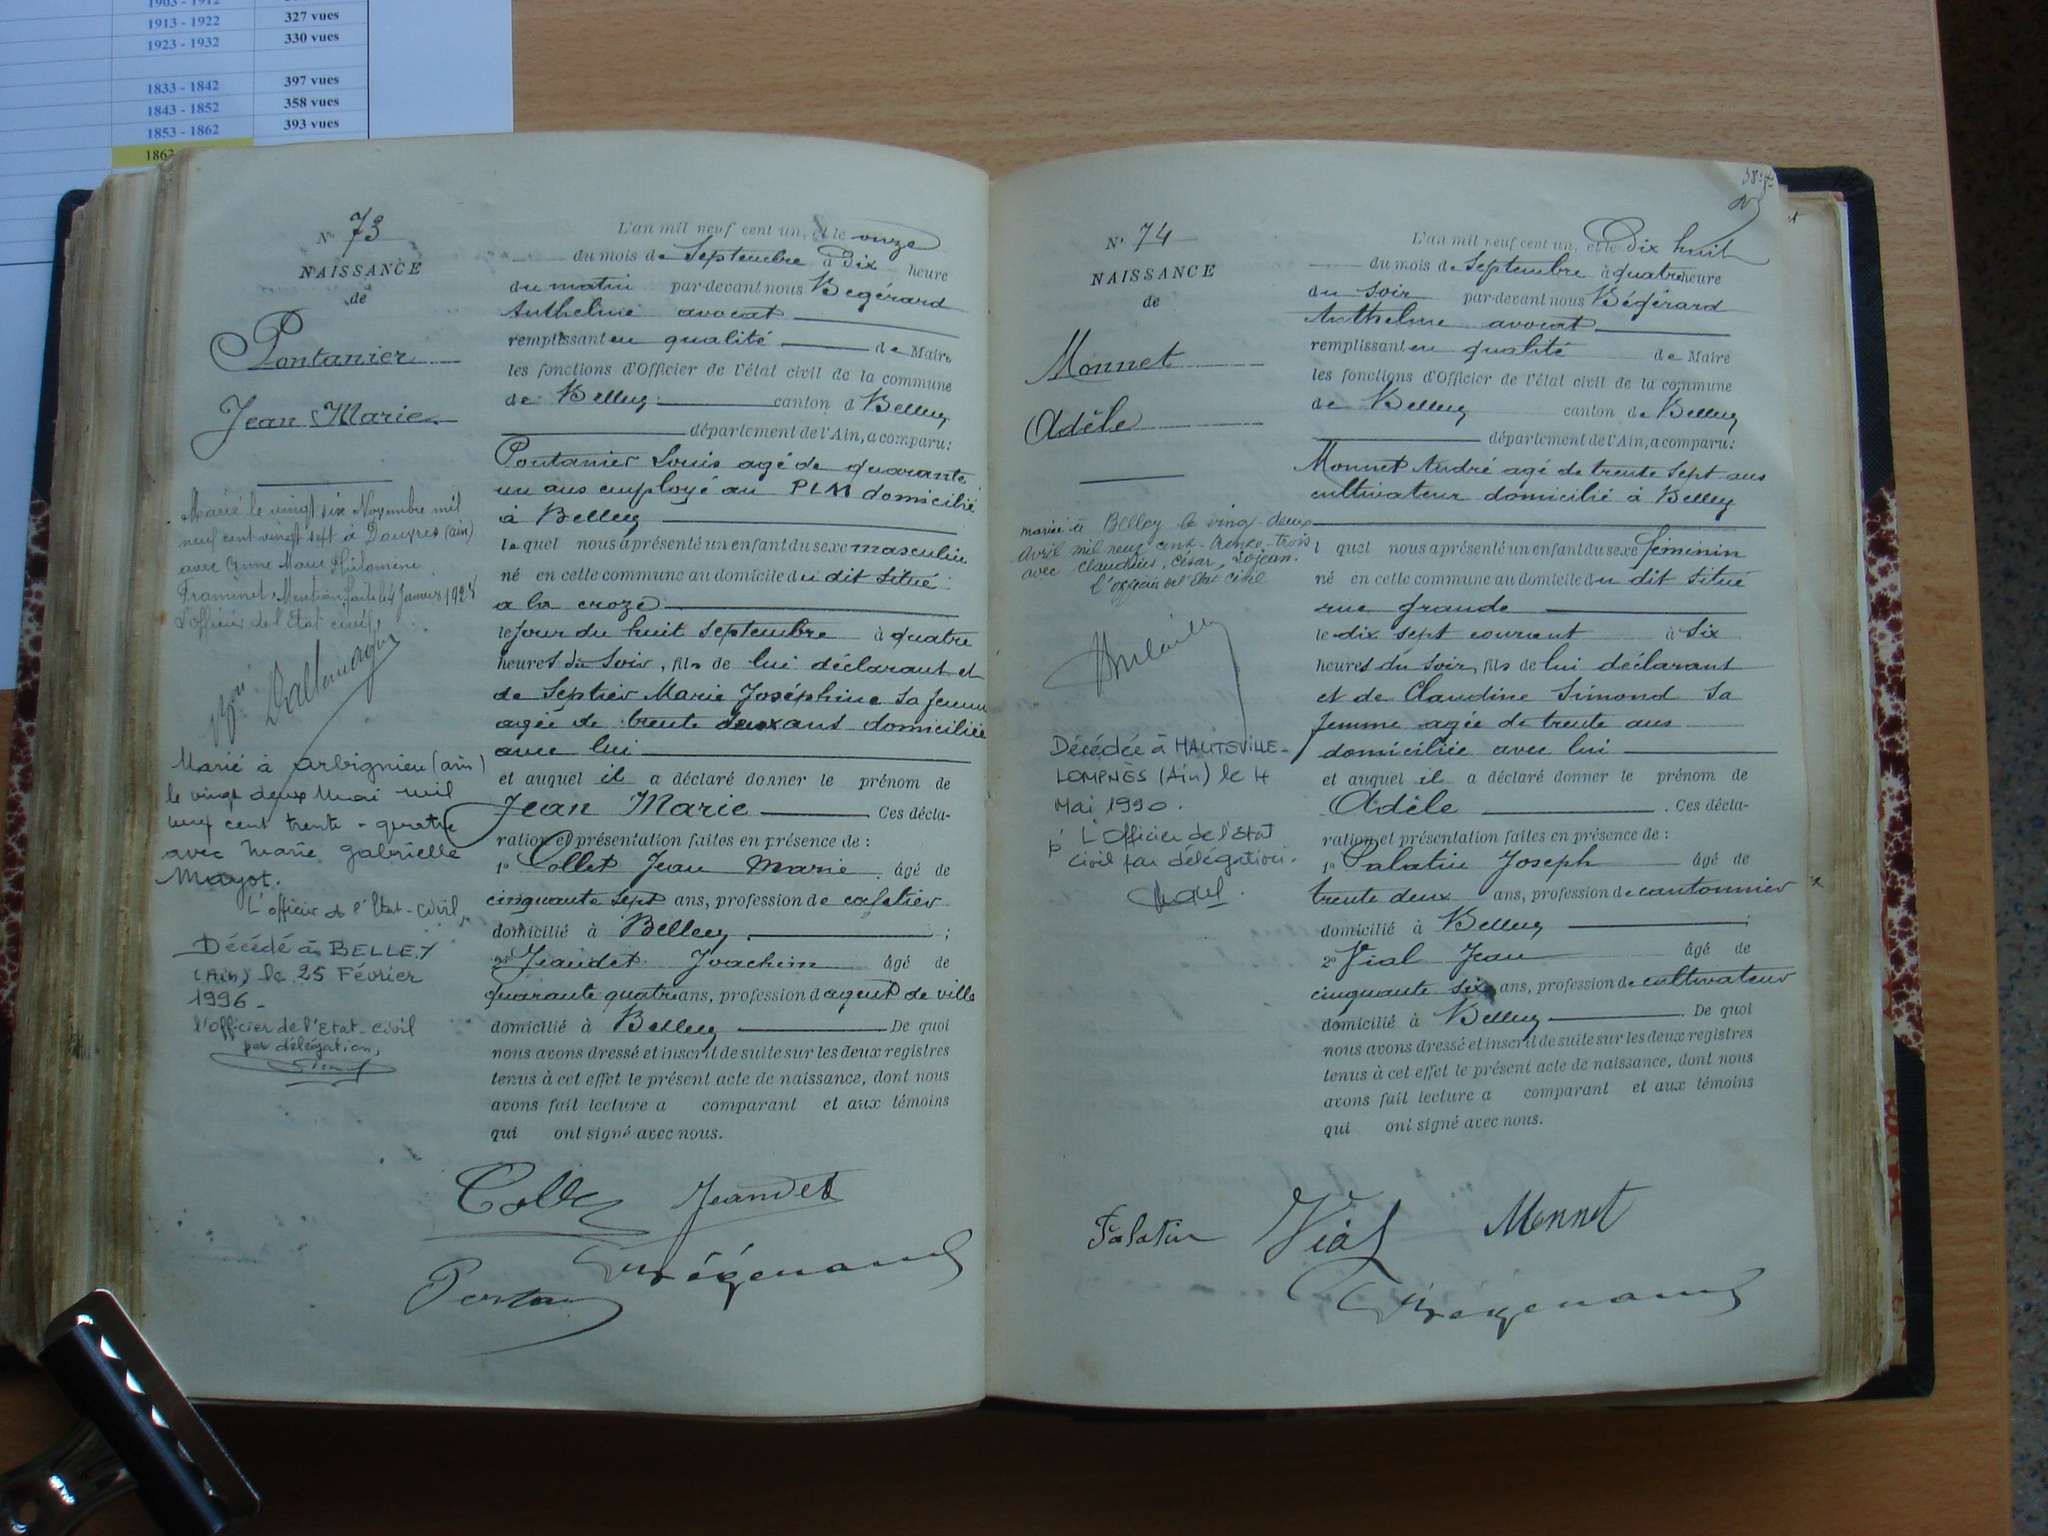 1903 - 1912
1913 - 1922 327 vues
1923 - 1932 330 vues
1833 - 1842 397 vues
1843 - 1852 358 vues
1853 - 1862 393 vues
N° 73
NAISSANCE
de
Pontanier
Jean Marie
Marié le vingt six Novembre mil
neuf cent vingt sept à Douvres (ain)
avec Anne Marie Philomène
Framinet. Mention faite le 4 Janvier 1928
L'officier de l'Etat civil,
Marié à Arbignieu (ain)
le vingt deux Mai mil
neuf cent trente-quatre
avec Marie Gabrielle
Mayot.
L'officier de l'Etat-Civil
Décédé à BELLEY
(Ain) le 25 Février
1996 -
l'officier de l'Etat-civil
par délégation,
L'an mil neuf cent un, et le onze
du mois de Septembre à Dix heure
du matin par-devant nous Bégérard
Anthelme avocat
remplissant en qualité de Maire
les fonctions d'Officier de l'état civil de la commune
de Belley canton d Belley
département de l'Ain, a comparu :
Pontanier Louis agé de quarante
un ans employé au PLM domicilié
à Belley
lequel nous a présenté un enfant du sexe masculin
né en cette commune au domicile du dit situé
a la croze
le jour du huit septembre à quatre
heures du soir, fils de lui déclarant et
de Septier Marie Joséphine sa femme
agée de trente deux ans domiciliée
avec lui
et auquel il a déclaré donner le prénom de
Jean Marie Ces décla-
ration et présentation faites en présence de :
1° Collet Jean Marie âgé de
cinquante sept ans, profession de cafetier
domicilié à Belley ;
2° Jeandet Joachim âgé de
quarante quatre ans, profession d agent de ville
domicilié à Belley De quoi
nous avons dressé et inscrit de suite sur les deux registres
tenus à cet effet le présent acte de naissance, dont nous
avons fait lecture a comparant et aux témoins
qui ont signé avec nous.
Collet Jeandet
Bégérard
N° 74
NAISSANCE
de
Monnet
Adèle
mariée à Belley le vingt-deux
Avril mil neuf cent trente-trois
avec Claudius, César, Dojean.
L'officier de l'Etat civil
Décédée à HAUTEVILLE-
LOMPNÈS (Ain) le 4
Mai 1990.
p L'Officier de l'Etat
civil par délégation.
L'an mil neuf cent un, et le Dix huit
du mois de Septembre à quatre heure
du soir par-devant nous Bégérard
Anthelme avocat
remplissant en qualité de Maire
les fonctions d'Officier de l'état civil de la commune
de Belley canton de Belley
département de l'Ain, a comparu :
Monnet André agé de trente sept ans
cultivateur domicilié à Belley
l quel nous a présenté un enfant du sexe féminin
né en cette commune au domicile du dit situé
rue grande
le dix sept courant à six
heures du soir, fils de lui déclarant
et de Claudine Simond sa
femme agée de trente ans
domiciliée avec lui
et auquel il a déclaré donner le prénom de
Adèle . Ces décla-
ration et présentation faites en présence de :
1° Palatin Joseph âgé de
trente deux ans, profession de cantonnier
domicilié à Belley ;
2° Vial Jean âgé de
cinquante six ans, profession de cultivateur
domicilié à Belley De quoi
nous avons dressé et inscrit de suite sur les deux registres
tenus à cet effet le présent acte de naissance, dont nous
avons fait lecture a comparant et aux témoins
qui ont signé avec nous.
Palatin Vial Monnet
Bégérard